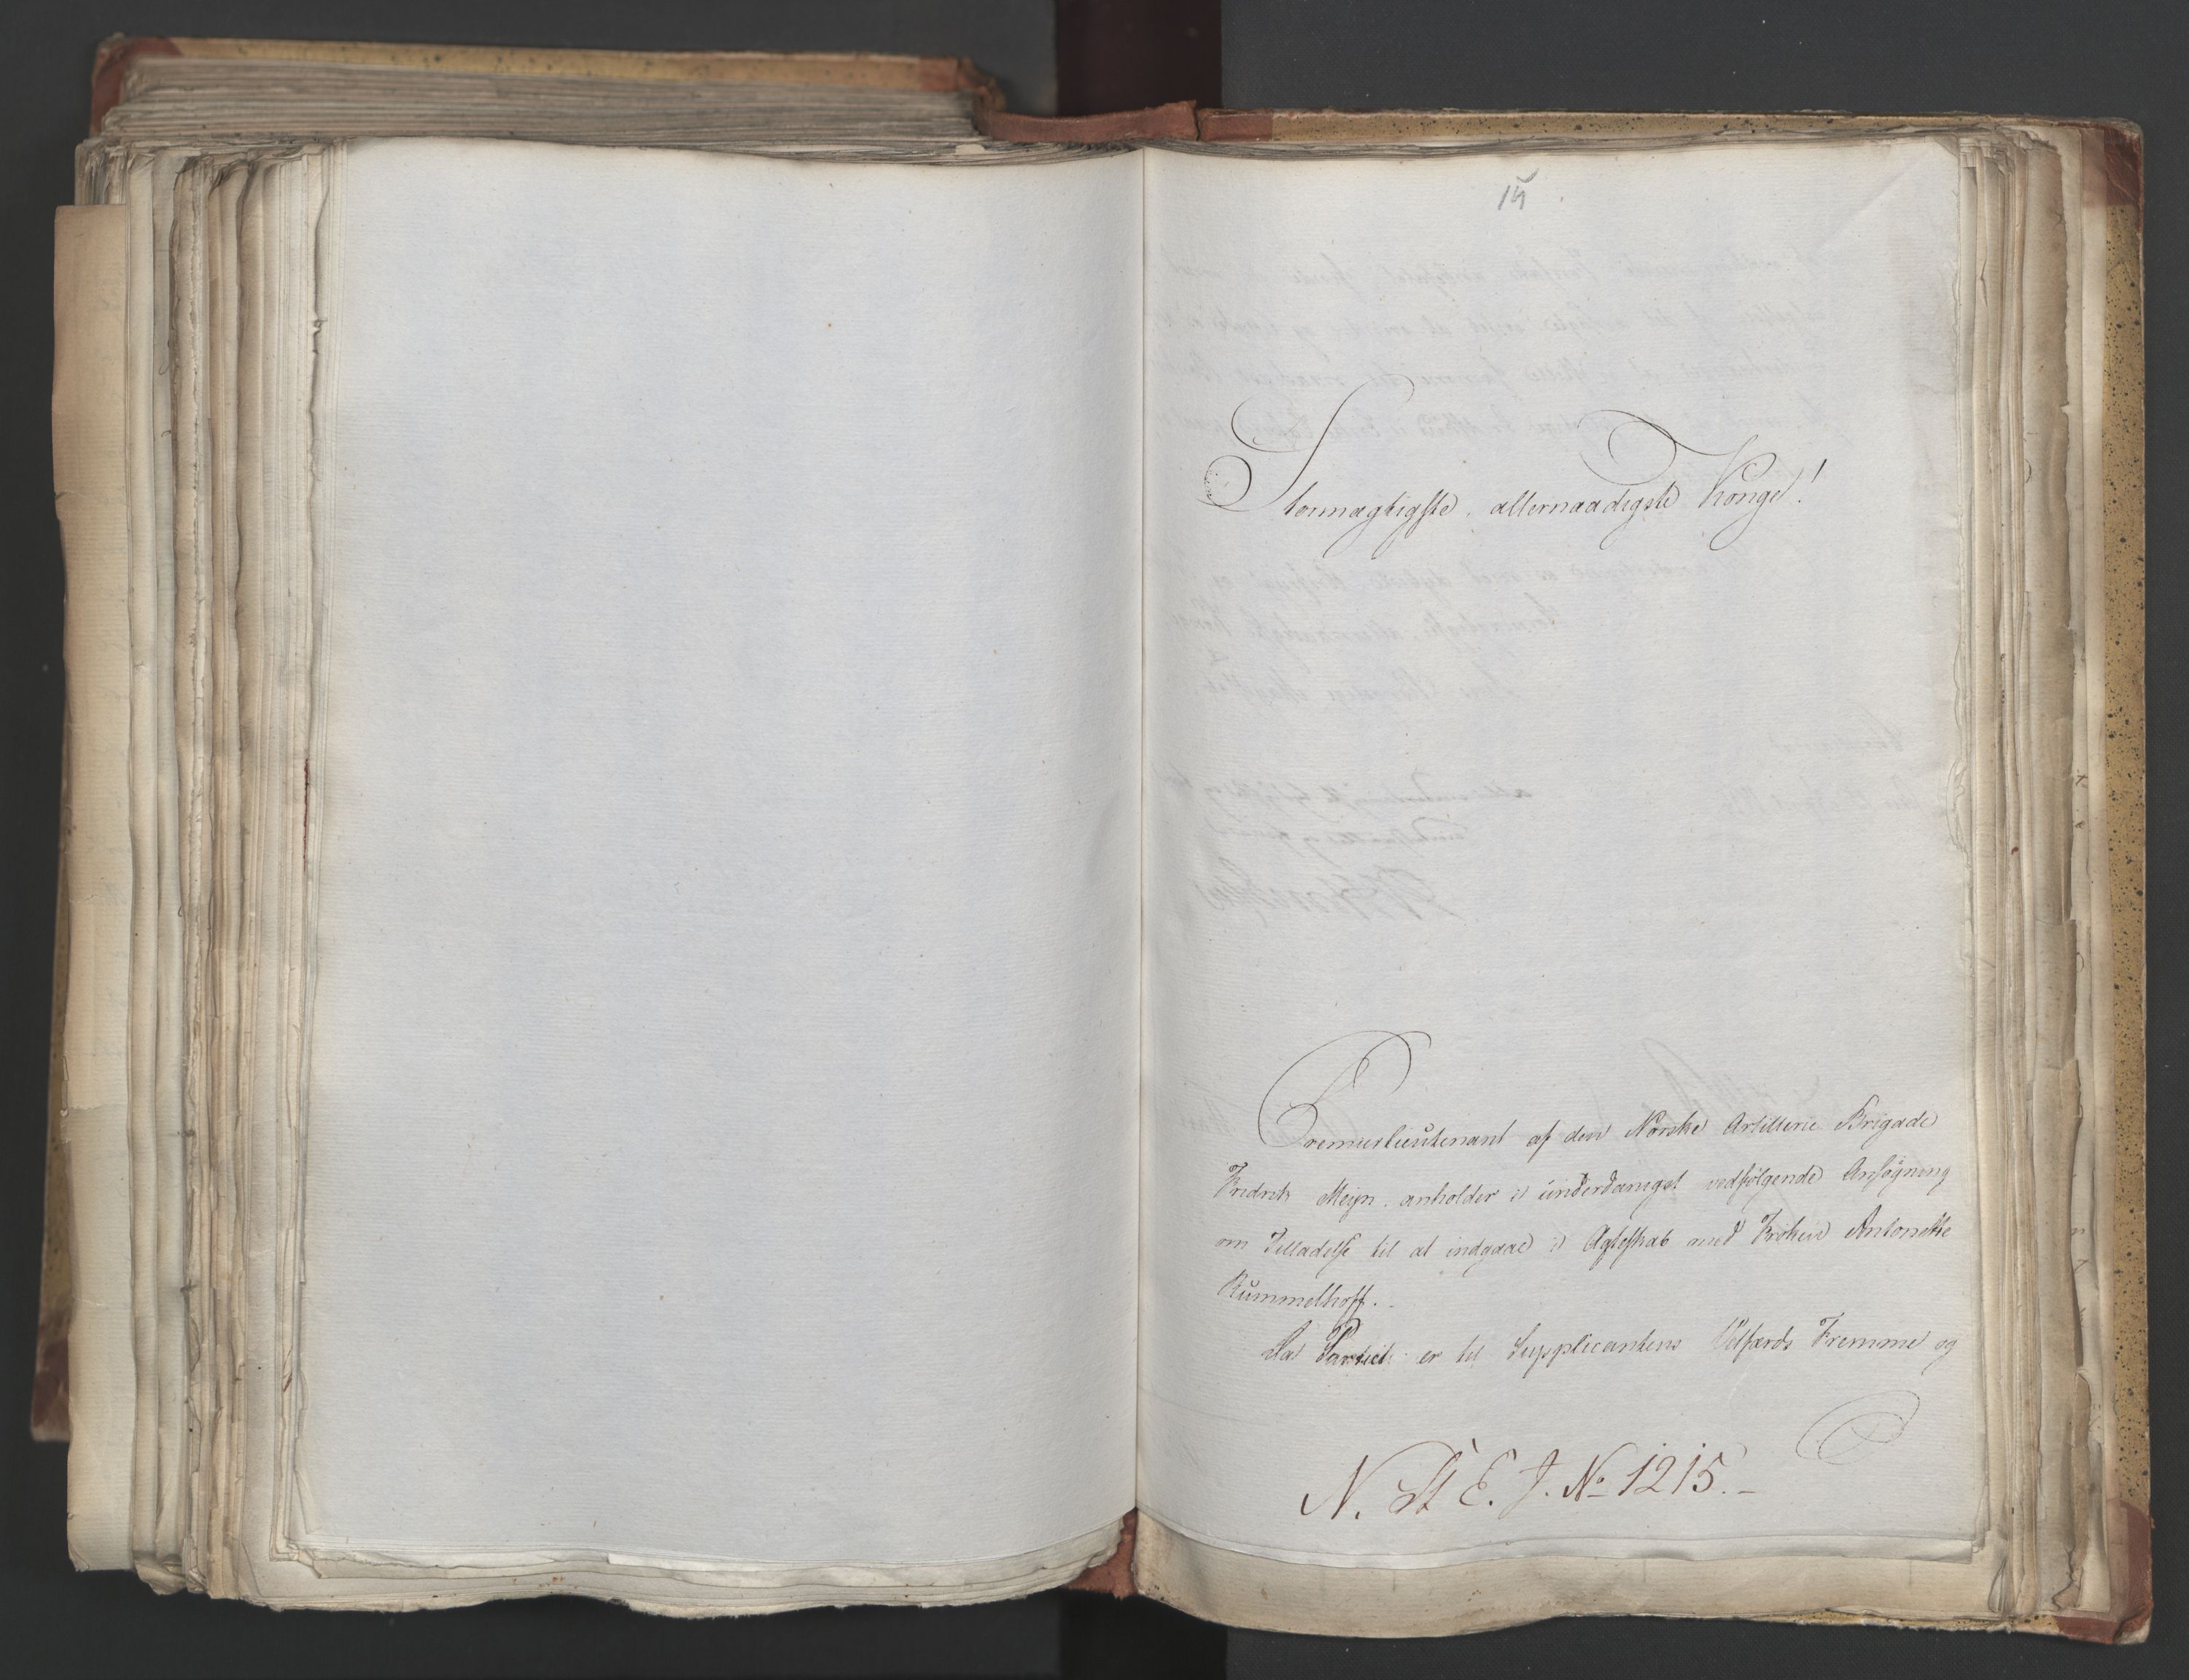 15.
Stormægtigste, allernaadigste Konge!
Premierlieutenant af den Norske Artillerie Brigade
Fredrik Meijn anholder i underdanigst vedfølgende Ansøgning
om Tilladelse til at indgaae i Ægteskab med Frøken Antonette
Rummelhoff.
Da Partiet er til Supplicantens Velfærds Fremme og
N. St E. J. No 1215.-